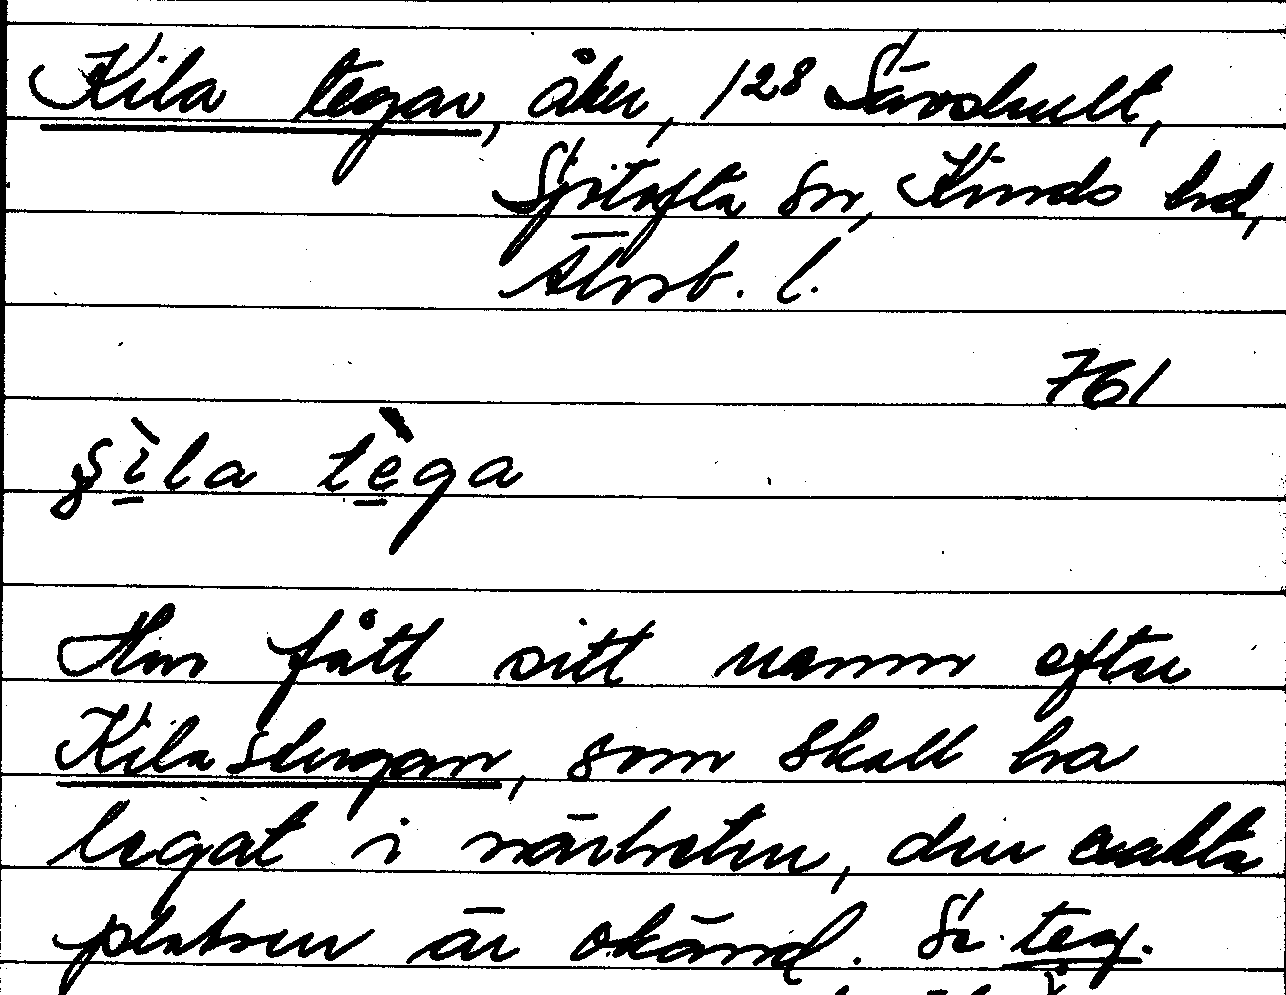 Kila tegar, åker, 128 Sävshult,
Sjötofta sn, Kinds hd,
Älvsb. l.
761
ʂìla tèga
Har fått sitt namn efter
Kilastugan, som skall ha
legat i närheten, den exakta
platsen är okänd. Se teg.